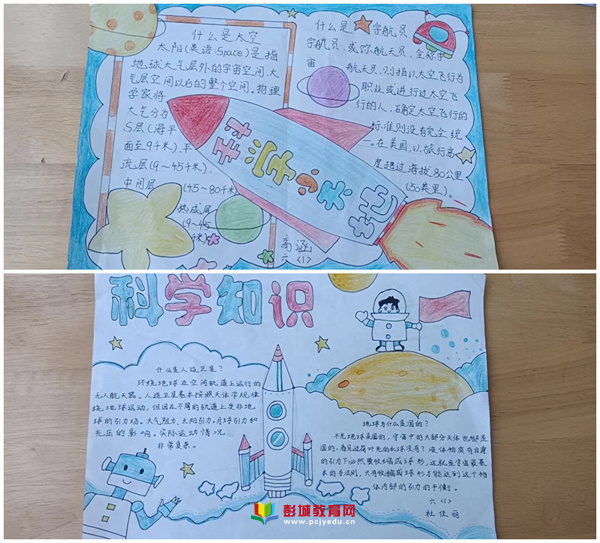 什么是太空
太阳(英语:Space)是指
地球大气层外的宇宙空间,大
气层空间以后的整个空间。物理
学家将
大气分为
5层(海平
面至9千米)、平
流层(9~45千米)
中间层(45~80千米)
热成层
(9~45
千米)
什么是宇航员
宇航员,或称航天员,全称宇
宙
航天员,则指以太空飞行为
职业或进行过太空飞
行的人。确定太空飞行的
标准则没有完全统
一。在美国,以旅行高
度超过海拔80公里
(50英里)。
科学小天地
高涵
六〈1〉
科学知识
什么是人造卫星?
环绕地球在空间轨道上运行的
无人航天器。人造卫星基本按照天体力学规律
绕地球运动,但因在不同的轨道上受非地
球的引力场、大气阻力、太阳引力、月球引力和
光压的影响。实际运动情况
非常复杂。
地球为什么是圆的?
不光地球是圆的,宇宙中的大部分天体也都是
体内部的引力的平衡。
六〈1〉
杜佳丽
彭城教育网
www.pcjyedu.cn